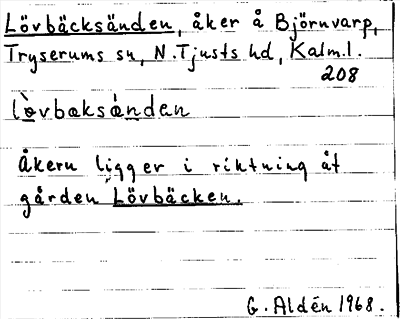 Lövbäcksänden, åker å Björnvarp,
Tryserums sn, N. Tjusts hd, Kalm.l.
208
lòvbæksǽnden
Åkern ligger i riktning åt
gården Lövbäcken.
G. Aldén 1968.